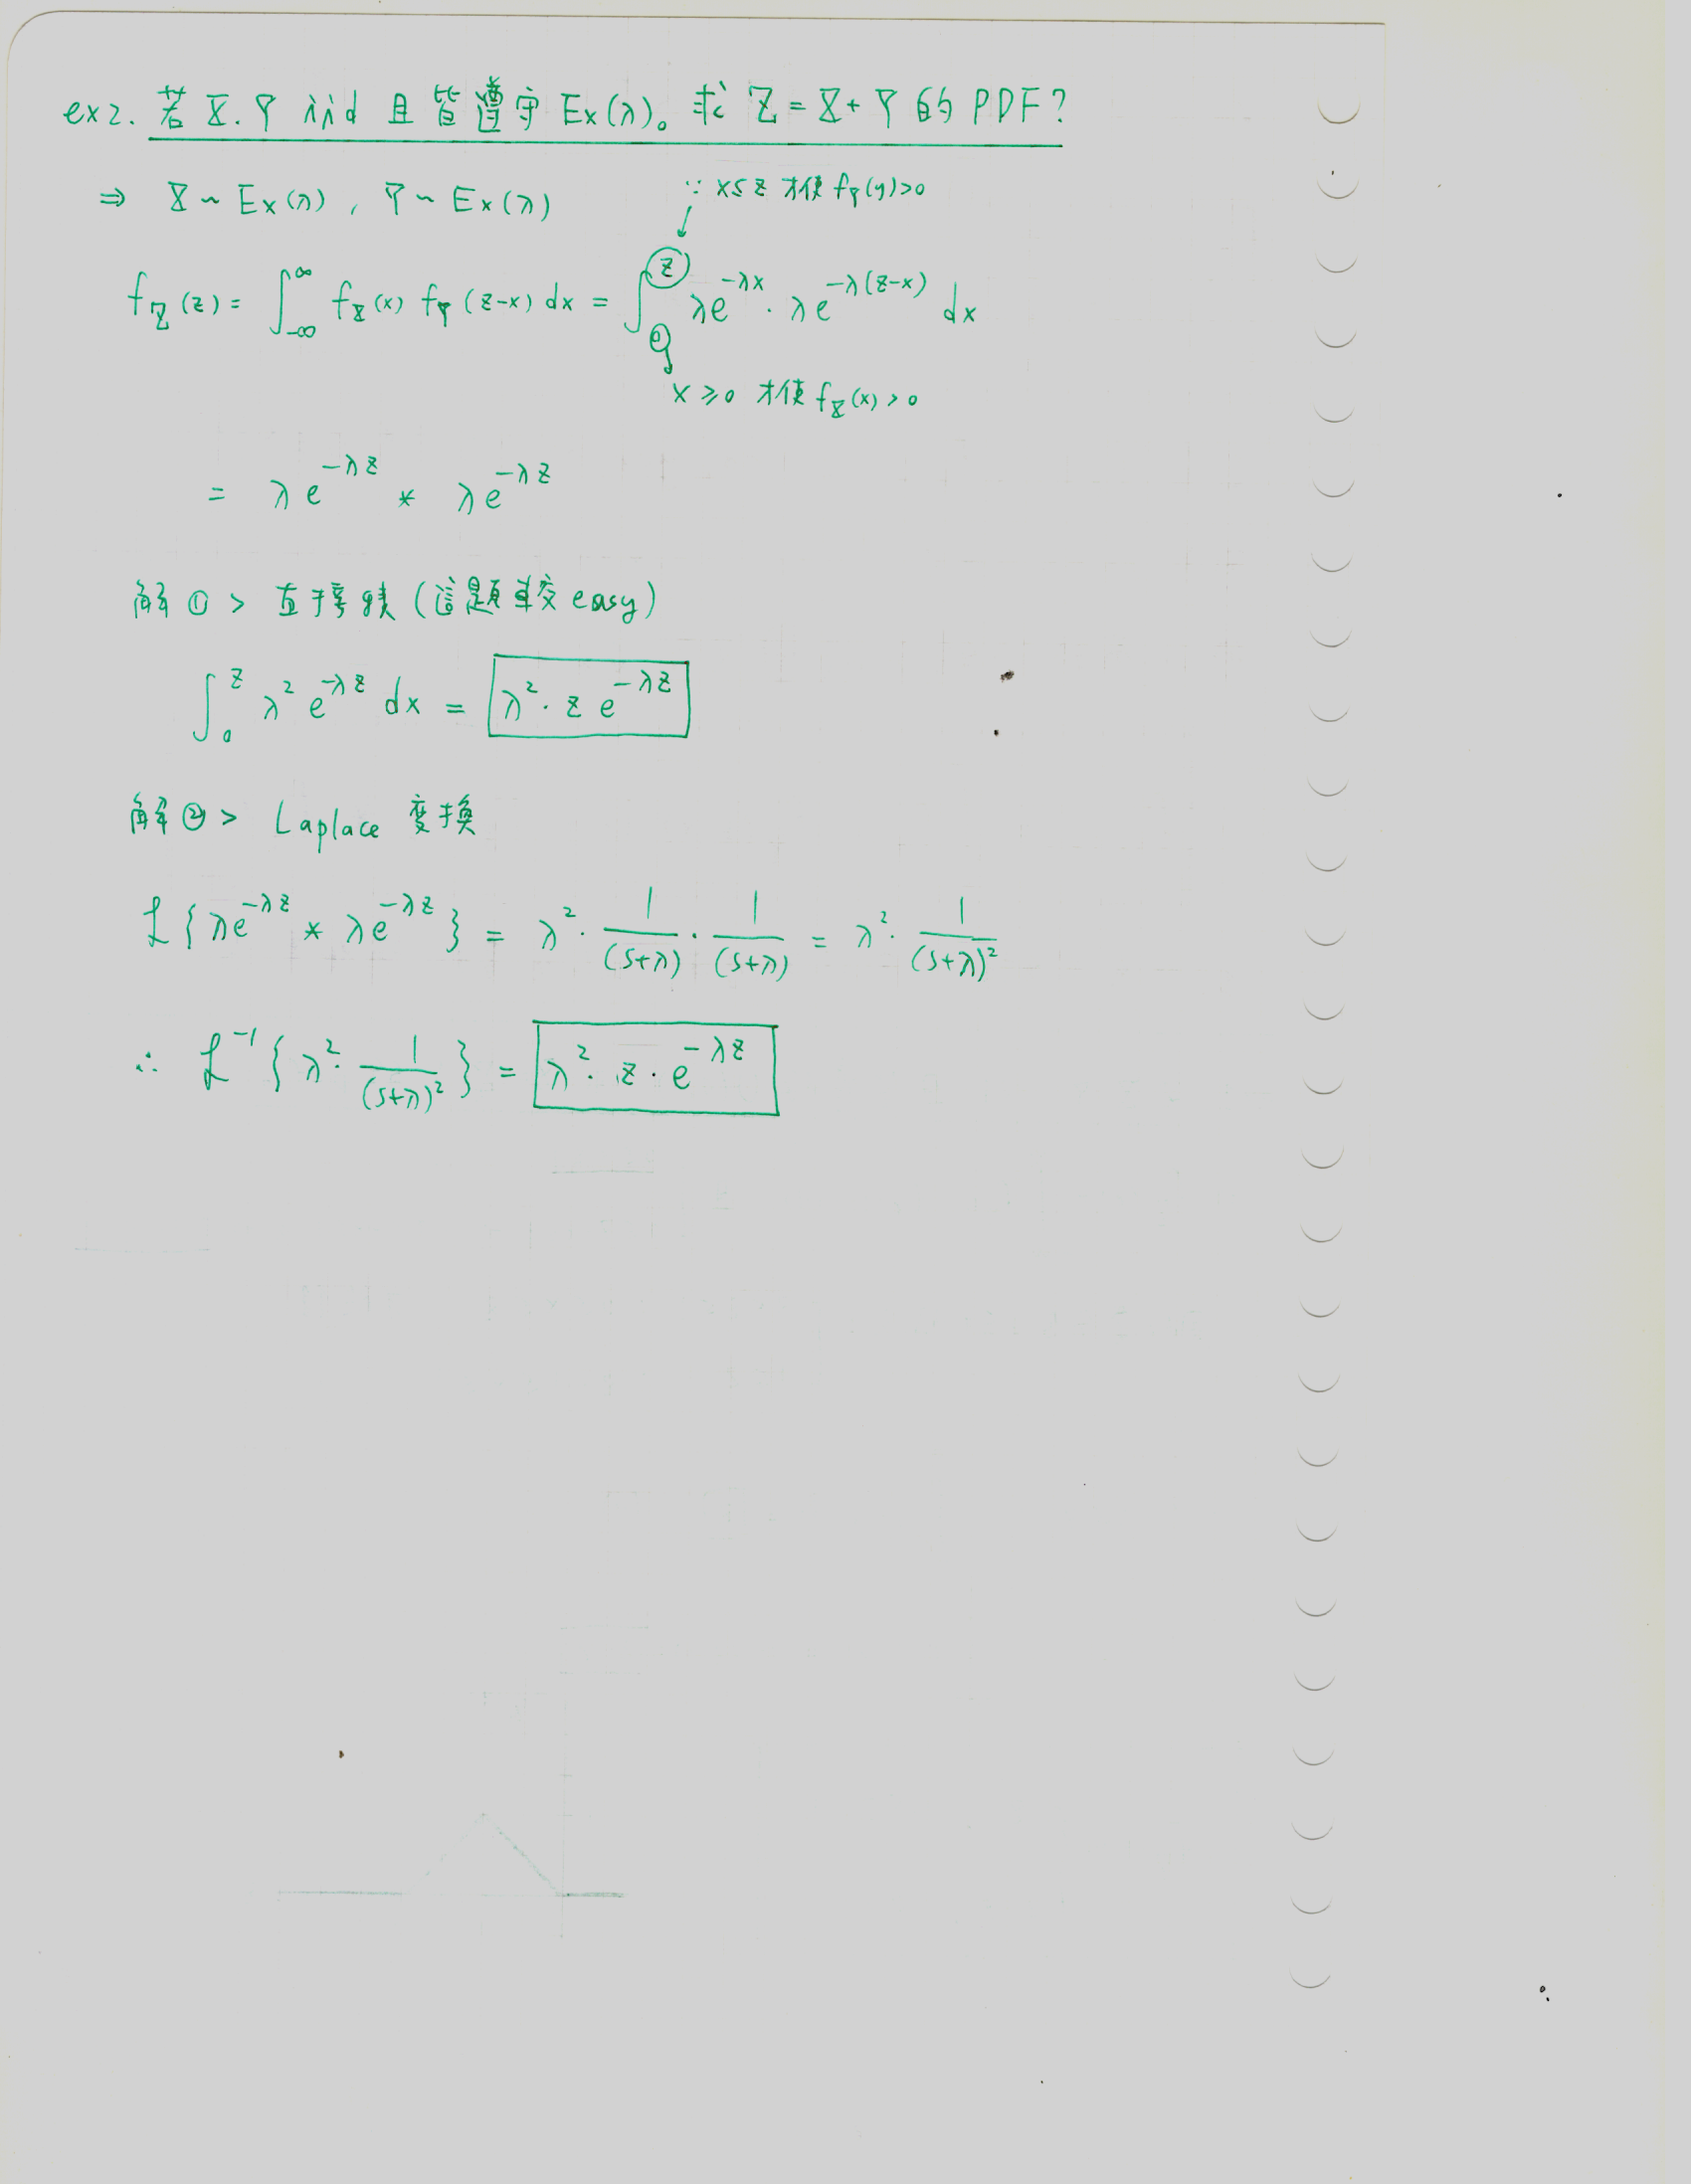 ex2. 若 X. Y iid 且 皆遵守 Ex(λ)。求 Z = X + Y 的 PDF?
⇒ X ~ Ex(λ), Y ~ Ex(λ)
∵ x≤z 才使 f_Y(y)>0
f_Z(z) = ∫_{-∞}^{∞} f_X(x) f_Y(z-x) dx = ∫_0^z λe^{-λx} · λe^{-λ(z-x)} dx
x ≥ 0 才使 f_X(x) > 0
= λe^{-λz} * λe^{-λz}
解① > 直接積 (這題較 easy)
∫_0^z λ² e^{-λz} dx = λ² · z e^{-λz}
解② > Laplace 變換
ℒ{λe^{-λz} * λe^{-λz}} = λ² · 1/(s+λ) · 1/(s+λ) = λ² · 1/(s+λ)²
∴ ℒ^{-1}{λ² · 1/(s+λ)²} = λ² · z · e^{-λz}